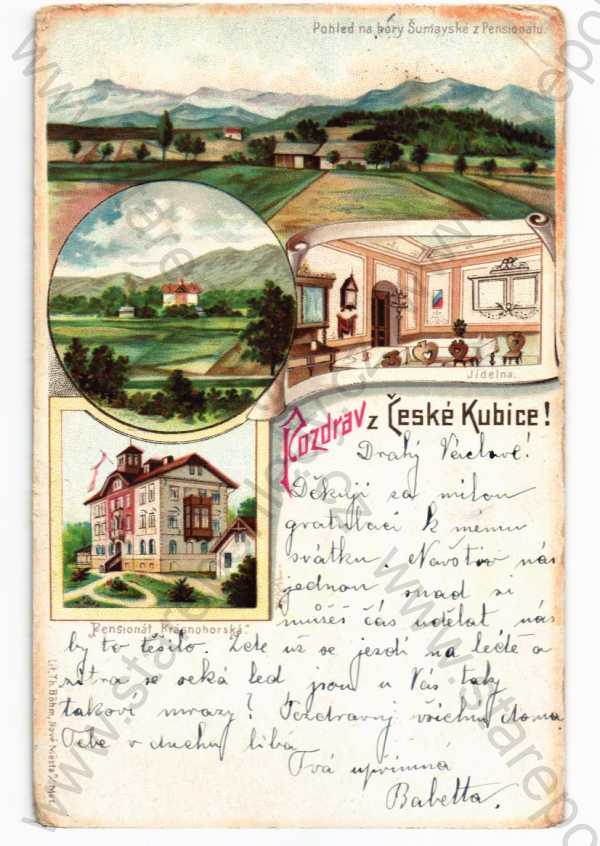 Pohled na hory Šumavské z Pensionátu.
Jídelna.
Pozdrav z České Kubice!
Drahý Václave!
Děkuji za milou
gratulaci k mému
svátku. Navštiv nás
jednou snad si
můžeš čas udělat nás
by to těšilo. Zde už se jezdí na ledě a
zítra se seká led jsou u Vás taky
takové mrazy? Pozdravuj všechny doma
Tebe v duchu líbá
Tvá upřímná
Babetta.
"Pensionát Krásnohorská"
Lit. Th. Böhm, Nové Město n/Met.
www.starepohledy.cz